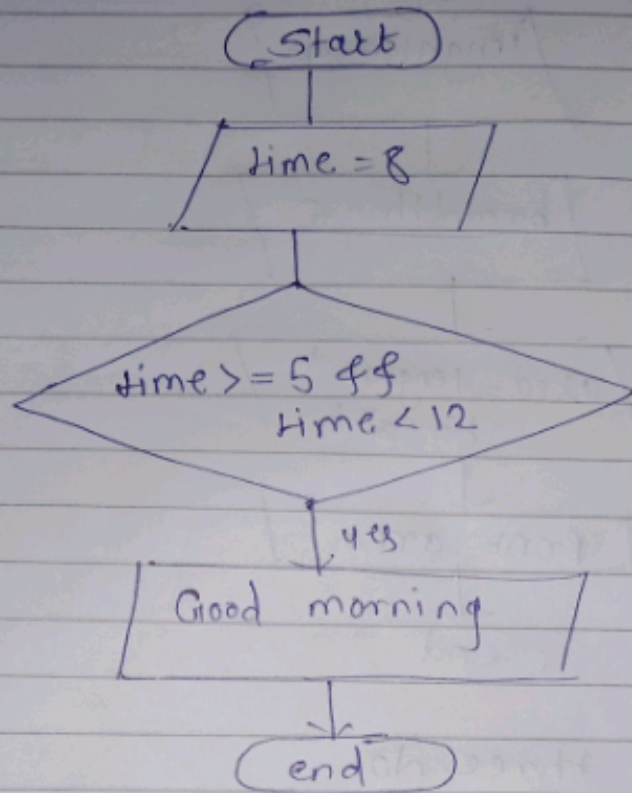 Start
time = 8
time >= 5 &&
time < 12
yes
Good morning
end